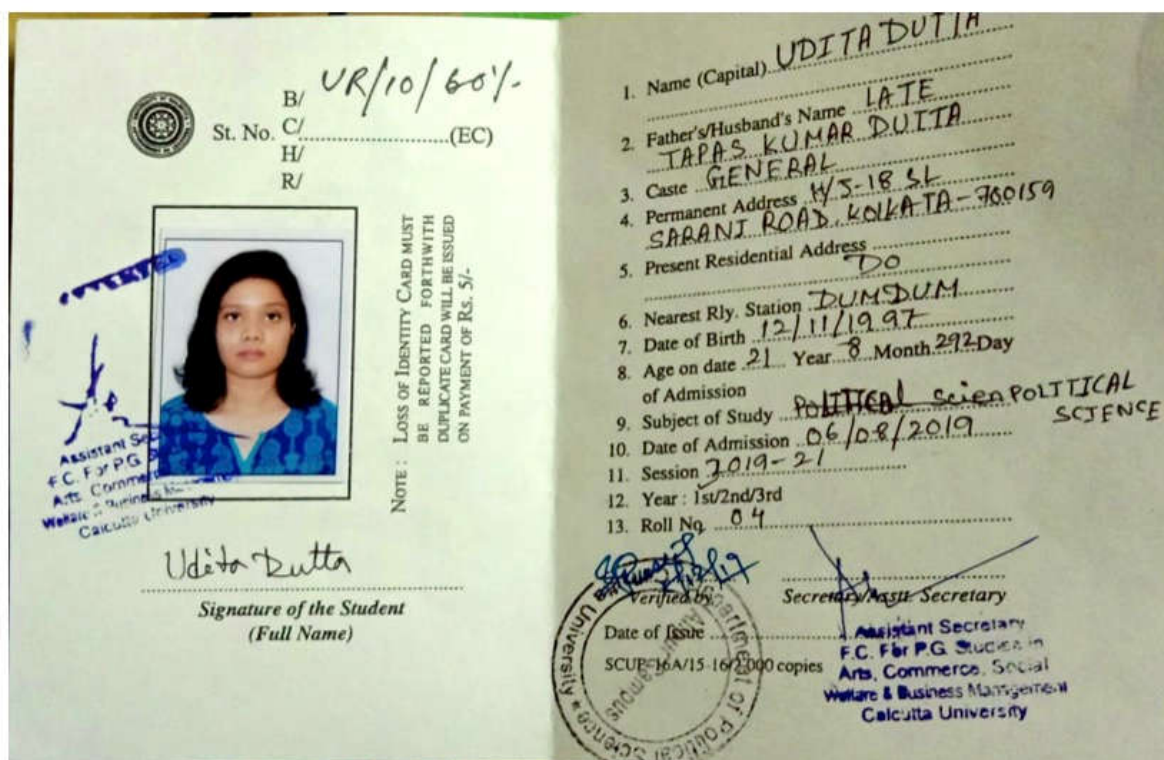 B/ UR/10/60'/-
St. No. C/ ..........(EC)
H/
R/
NOTE : LOSS OF IDENTITY CARD MUST
BE REPORTED FORTHWITH
DUPLICATE CARD WILL BE ISSUED
ON PAYMENT OF RS. 5/-
Assistant Sec
F.C. For P.G.
Arts, Commerce
Welfare & Business
Calcutta University
Udita Dutta
Signature of the Student
(Full Name)
1. Name (Capital) UDITA DUTTA
2. Father's/Husband's Name LATE
TAPAS KUMAR DUTTA
3. Caste GENERAL
4. Permanent Address H/J-18 SL
SARANI ROAD, KOLKATA - 700159
5. Present Residential Address
DO
6. Nearest Rly. Station DUMDUM
7. Date of Birth 12/11/1997
8. Age on date 21 Year 8 Month 292 Day
of Admission
9. Subject of Study POLITICAL Scien POLITICAL
SCIENCE
10. Date of Admission 06/08/2019
11. Session 2019-21
12. Year : 1st/2nd/3rd
13. Roll No. 04
Verified by Secretary/Asstt. Secretary
Date of Issue
SCUP-16A/15-16/2,000 copies
Assistant Secretary
F.C. For P.G. Studies in
Arts, Commerce, Social
Welfare & Business Management
Calcutta University
Department of Political Science
University
Alipur Campus